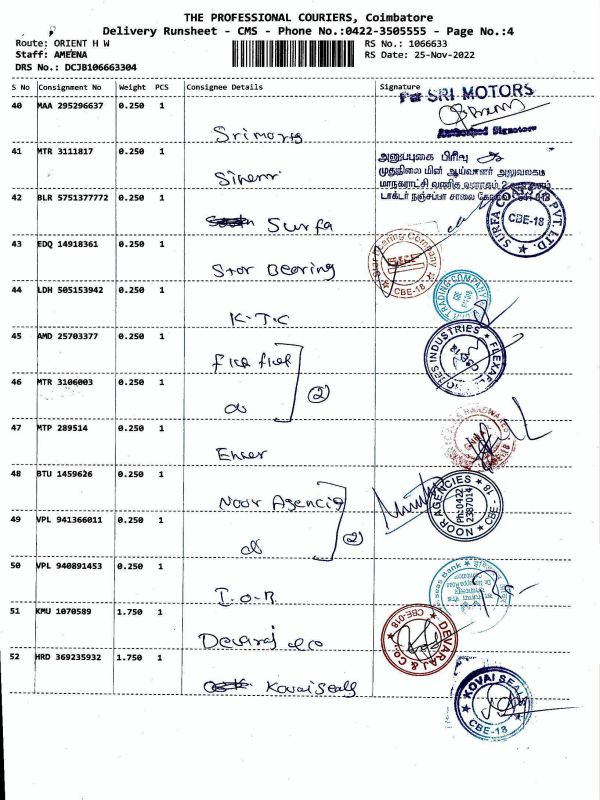 THE PROFESSIONAL COURIERS, Coimbatore
Delivery Runsheet - CMS - Phone No.:0422-3505555 - Page No.:4
Route: ORIENT H W
RS No.: 1066633
Staff: AMEENA
RS Date: 25-Nov-2022
DRS No.: DCJB106663304
S No Consignment No Weight PCS Consignee Details Signature
40 MAA 295296637 0.250 1 Srimors
For SRI MOTORS
Authorised Signatore
41 MTR 3111817 0.250 1
அனுப்புகை பிரிவு
முதுநிலை மின் ஆய்வாளர் அலுவலகம்
மாநகராட்சி வணிக வளாகம் 2
டாக்டர் நஞ்சப்பா சாலை
42 BLR 5751377772 0.250 1 Surfa
SURFA PVT. LTD. CBE-18
43 EDQ 14918361 0.250 1 Star Bearing
Star Bearing Company CBE-18
44 LDH 505153942 0.250 1 K.T.C
TRADING COMPANY
45 AMD 25703377 0.250 1
INDUSTRIES
46 MTR 3106003 0.250 1 do (2)
47 MTP 289514 0.250 1
HARDWARE
48 BTU 1459626 0.250 1 Noor Agencis
NOOR AGENCIES CBE - 18
Ph:0422
2387014
49 VPL 941366011 0.250 1 do (2)
50 VPL 940891453 0.250 1 I.O.B
seas Bank
51 KMU 1070589 1.750 1 Devaraj &co
DEVARAJ & CO. CBE-018
52 HRD 369235932 1.750 1 Kovai Seals
KOVAI SEALS CBE-18